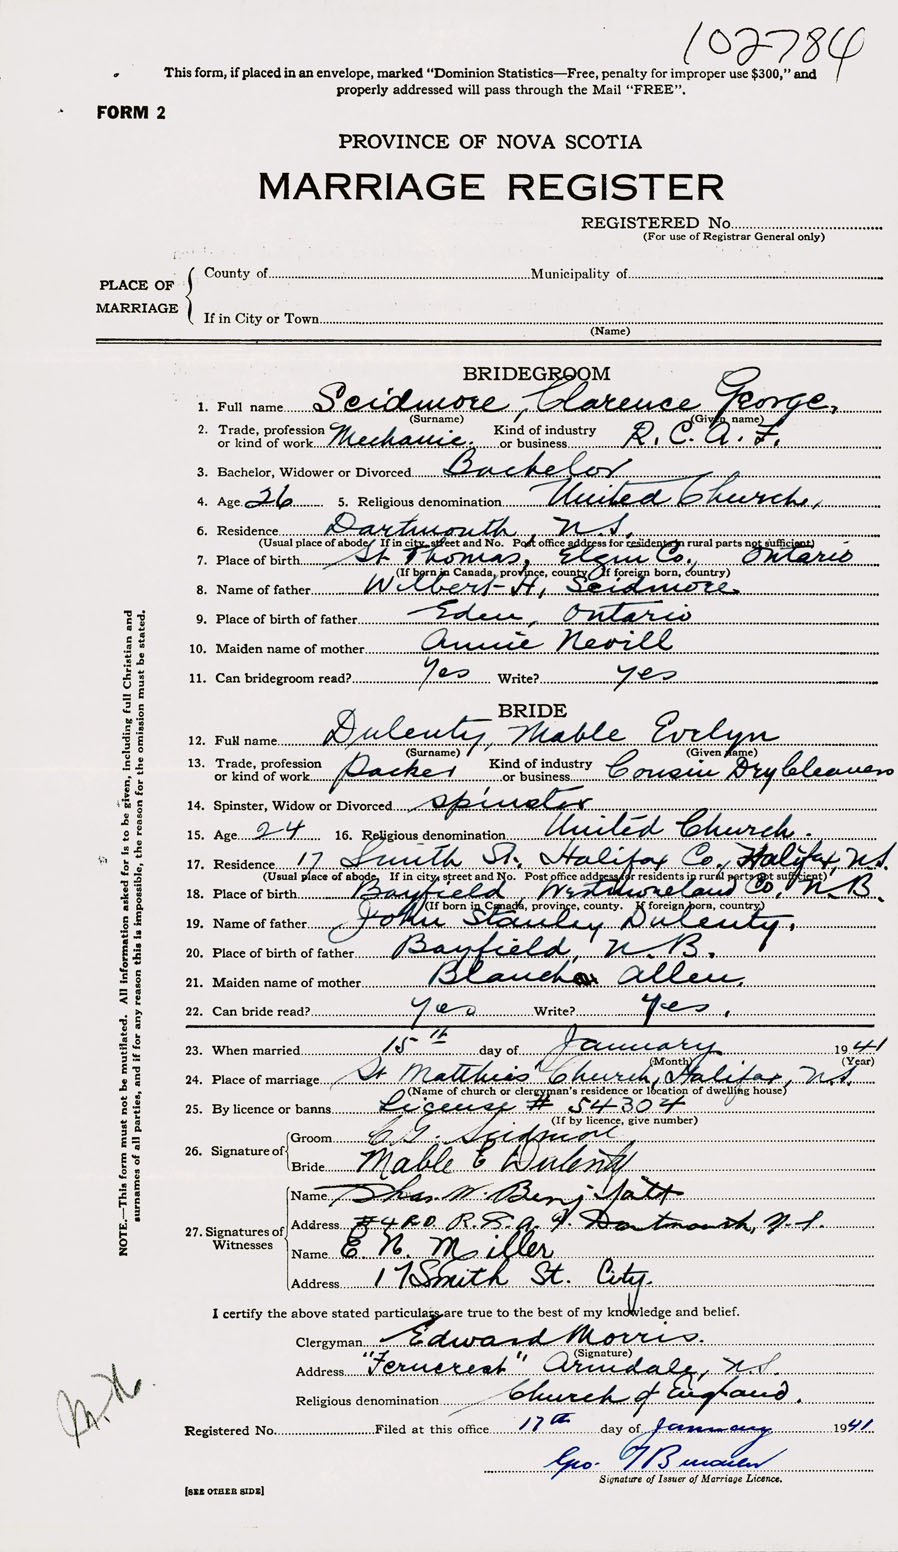 102784
This form, if placed in an envelope, marked "Dominion Statistics—Free, penalty for improper use $300," and
properly addressed will pass through the Mail "FREE".
FORM 2
PROVINCE OF NOVA SCOTIA
MARRIAGE REGISTER
REGISTERED No.
(For use of Registrar General only)
PLACE OF MARRIAGE
County of Municipality of
If in City or Town
(Name)
BRIDEGROOM
1. Full name Scidmore, Clarence George,
(Surname) (Given name)
2. Trade, profession or kind of work Mechanic. Kind of industry or business R.C.A.F.
3. Bachelor, Widower or Divorced Bachelor
4. Age 26 5. Religious denomination United Church,
6. Residence Dartmouth, N.S.
(Usual place of abode. If in city, street and No. Post office address for residents in rural parts not sufficient)
7. Place of birth St Thomas, Elgin Co., Ontario
(If born in Canada, province, county. If foreign born, country)
8. Name of father Wilbert H, Scidmore.
9. Place of birth of father Eden, Ontario
10. Maiden name of mother Annie Nevill
11. Can bridegroom read? Yes Write? Yes
BRIDE
12. Full name Dulenty, Mable Evelyn
(Surname) (Given name)
13. Trade, profession or kind of work Packer Kind of industry or business Cousin Dry Cleaners
14. Spinster, Widow or Divorced spinster
15. Age 24 16. Religious denomination United Church.
17. Residence 17 Smith St. Halifax Co., Halifax, N.S.
(Usual place of abode. If in city, street and No. Post office address for residents in rural parts not sufficient)
18. Place of birth Bayfield, Westmoreland Co., N.B.
(If born in Canada, province, county. If foreign born, country)
19. Name of father John Stanley Dulenty.
20. Place of birth of father Bayfield, N.B.
21. Maiden name of mother Blanche Allen.
22. Can bride read? Yes Write? Yes.
23. When married 15th day of January 1941
(Month) (Year)
24. Place of marriage St Matthias' Church, Halifax, N.S.
(Name of church or clergyman's residence or location of dwelling house)
25. By licence or banns License # 54304
(If by licence, give number)
26. Signature of
Groom C G. Scidmore
Bride Mable E Dulenty
27. Signatures of Witnesses
Name W. Benj
Address R.C.A.F. Dartmouth, N.S.
Name E N. Miller
Address 17 Smith St. City.
I certify the above stated particulars are true to the best of my knowledge and belief.
Clergyman Edward Morris.
(Signature)
Address "Ferncrest" Armdale, N.S.
Religious denomination Church of England.
Registered No. Filed at this office 17th day of January 1941
Geo.
Signature of Issuer of Marriage Licence.
[SEE OTHER SIDE]
NOTE.—This form must not be mutilated. All information asked for is to be given, including full Christian and
surnames of all parties, and if for any reason this is impossible, the reason for the omission must be stated.